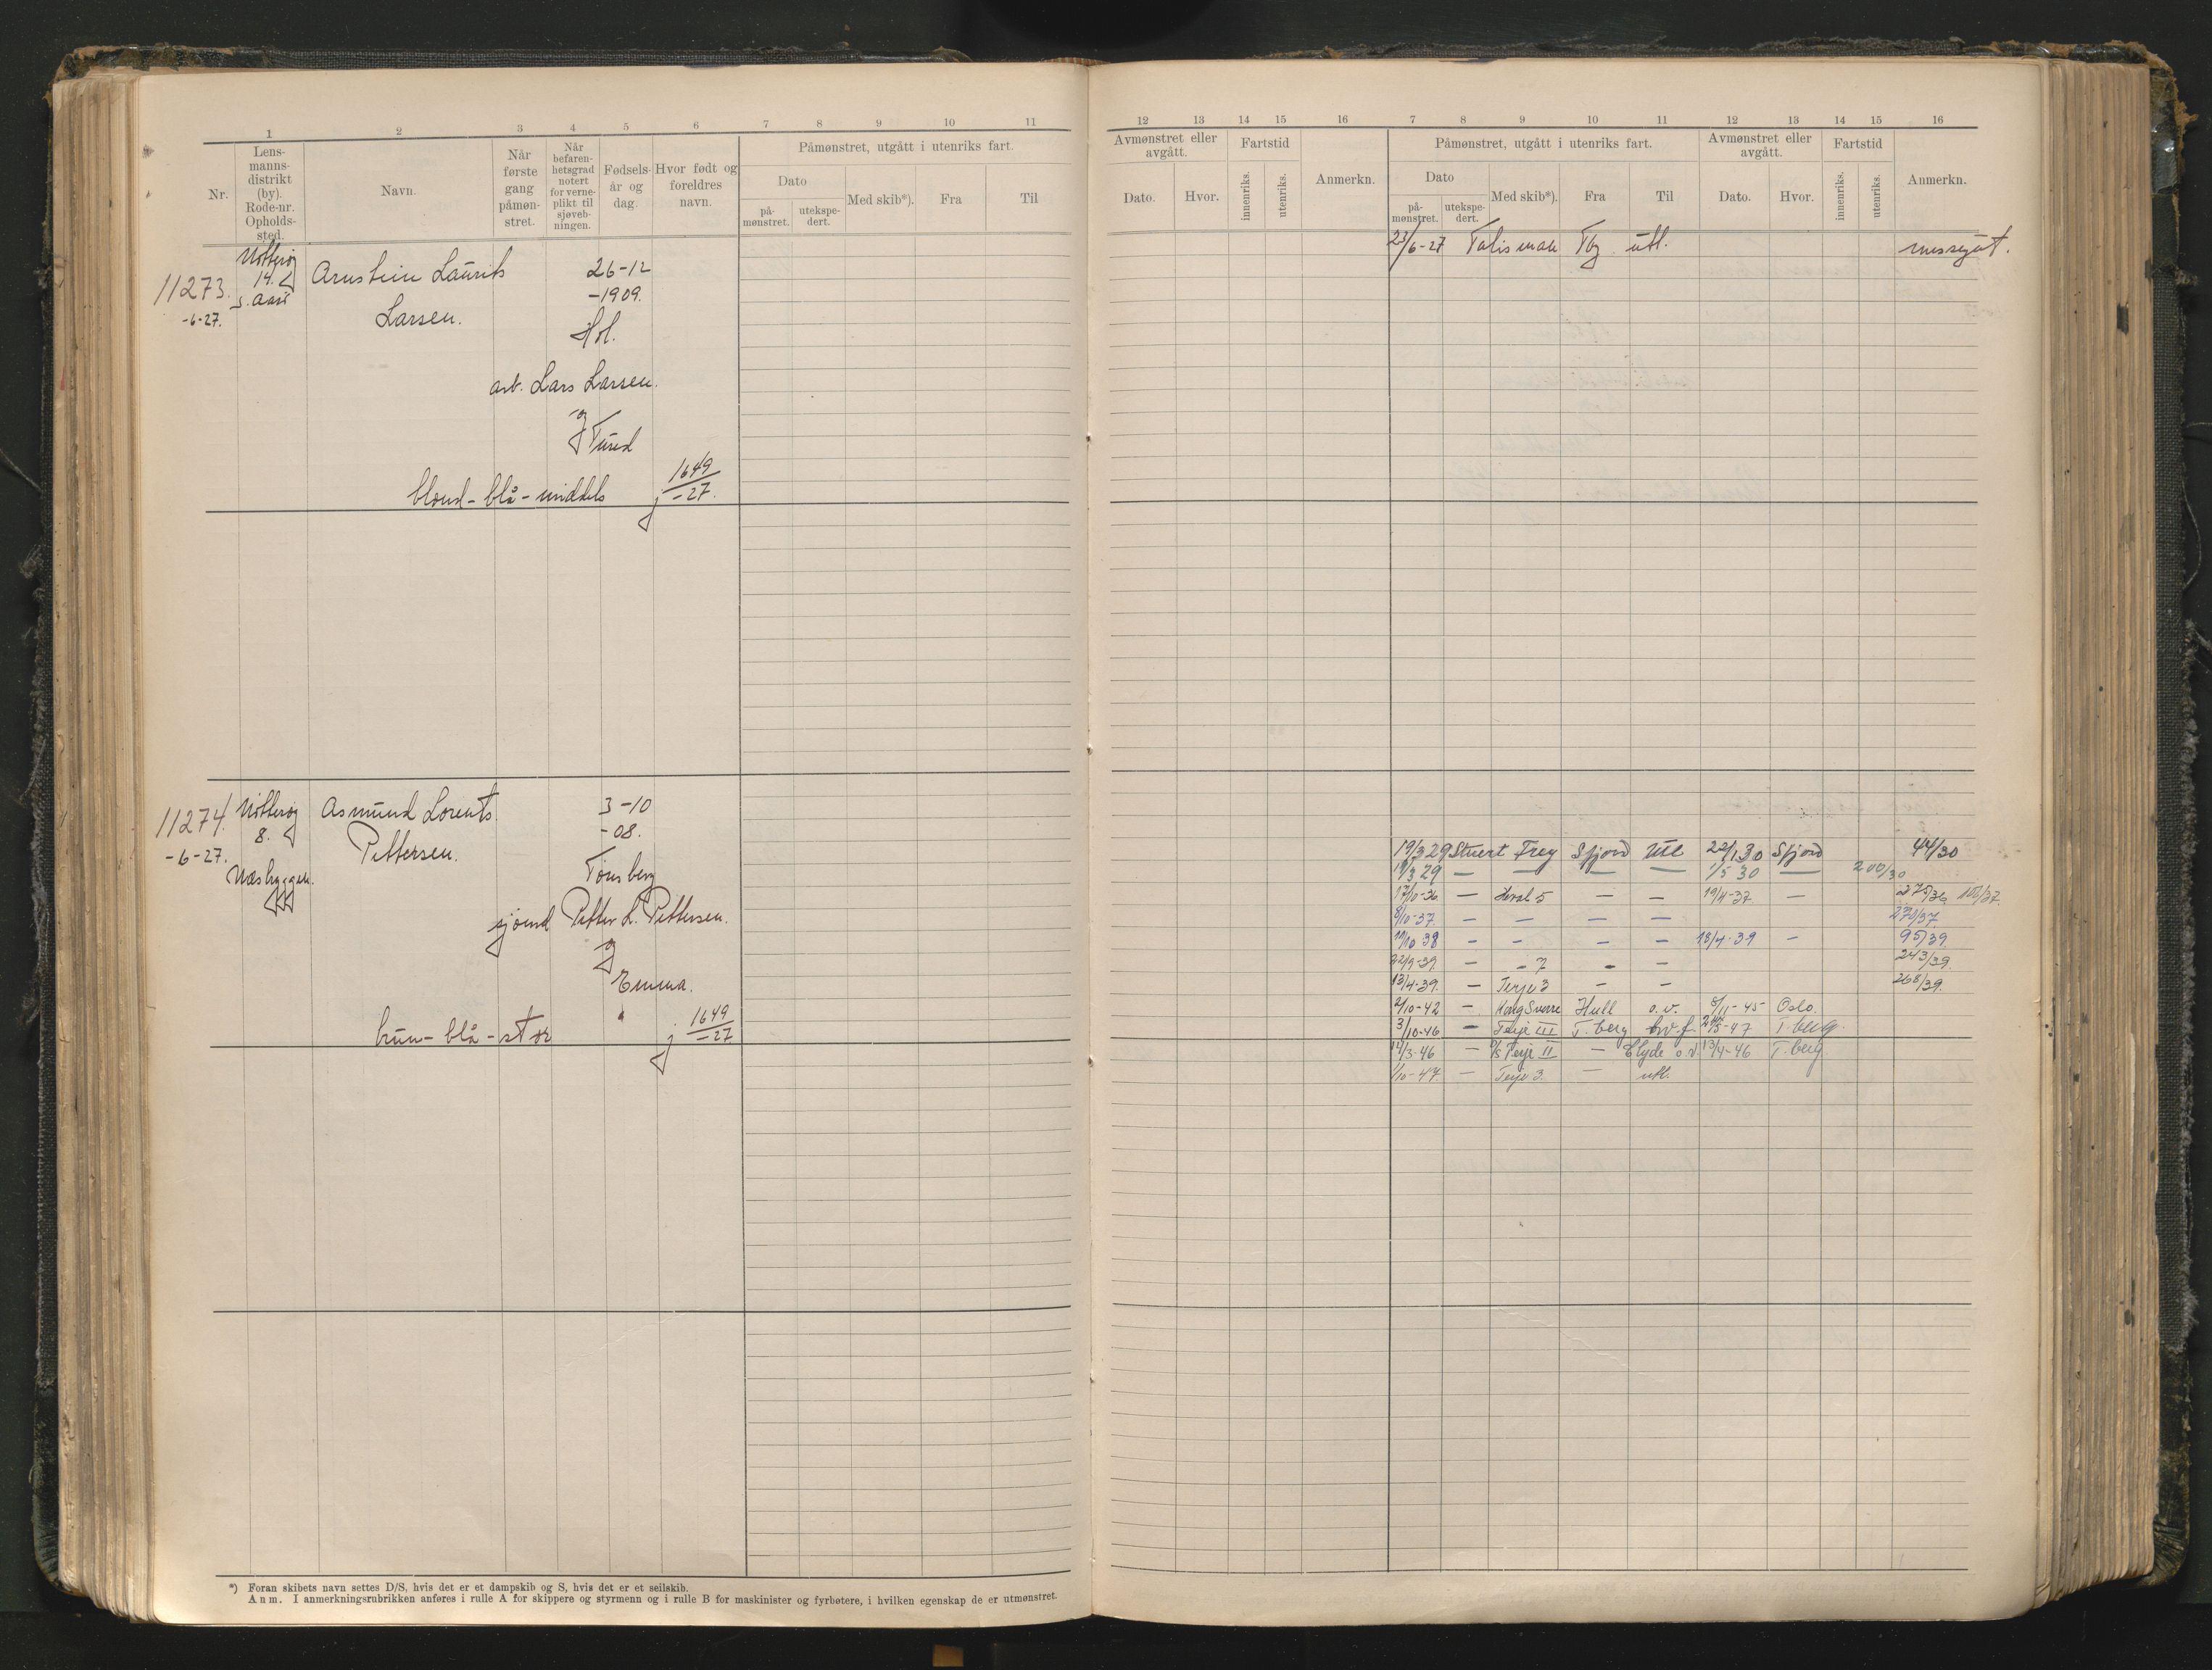 1 2 3 4 5 6 7 8 9 10 11
Nr.
Lens-
manns-
distrikt
(by).
Rode-nr.
Opholds-
sted.
Navn.
Når
første
gang
påmøn-
stret.
Når
befaren-
hetsgrad
notert
for verne-
plikt til
sjøveb-
ningen.
Fødsels-
år og
dag.
Hvor født og
foreldres
navn.
Påmønstret, utgått i utenriks fart.
Dato
på-
mønstret.
utekspe-
dert.
Med skib*).
Fra
Til
11273.
-6-27.
Nøtterøy
14.
Arnstein Laurits
Larsen.
26-12
-1909.
Hol.
arb. Lars Larsen.
og
blond - blå - middels
1649
-27.
11274.
-6-27.
Nøtterøy
8.
Asmund Lorents
Pettersen.
3-10
-08.
Tønsberg
sjømd Petter L. Pettersen.
og
Emma.
brun - blå - stor
1649
-27
*) Foran skibets navn settes D/S, hvis det er et dampskib og S, hvis det er et seilskib.
Anm. I anmerkningsrubrikken anføres i rulle A for skippere og styrmenn og i rulle B for maskinister og fyrbøtere, i hvilken egenskap de er utmønstret.
12 13 14 15 16 7 8 9 10 11 12 13 14 15 16
Avmønstret eller
avgått.
Dato.
Hvor.
Fartstid
innenriks.
utenriks.
Anmerkn.
Påmønstret, utgått i utenriks fart.
Dato
på-
mønstret.
utekspe-
dert.
Med skib*).
Fra
Til
Avmønstret eller
avgått.
Dato.
Hvor.
Fartstid
innenriks.
utenriks.
Anmerkn.
23/6-27 Talisman Tbg utl. messegut.
19/3 29 Stuert Frey Sfjord Utl 22/1 30 Sfjord 44/30
19/3 29 — — — — 1/5 30 — 200/30
17/10-36 — — — 19/4-37. — 275/36
8/10-37 — — — — 270/37
11/10 38 — — — — 18/4-39 — 95/39.
22/9-39. — - 7 — — 243/39.
13/4-39. — Terje 3 — — 268/39.
2/10-42 — Kong Sverre Hull o.v. 8/11-45 Oslo.
3/10-46 — Terje III T.berg hv.f. -47 T.berg.
12/3-46 — Terje II — Clyde o.v. 13/4-46 T.berg
1/10-47. — Terje 3. — utl.